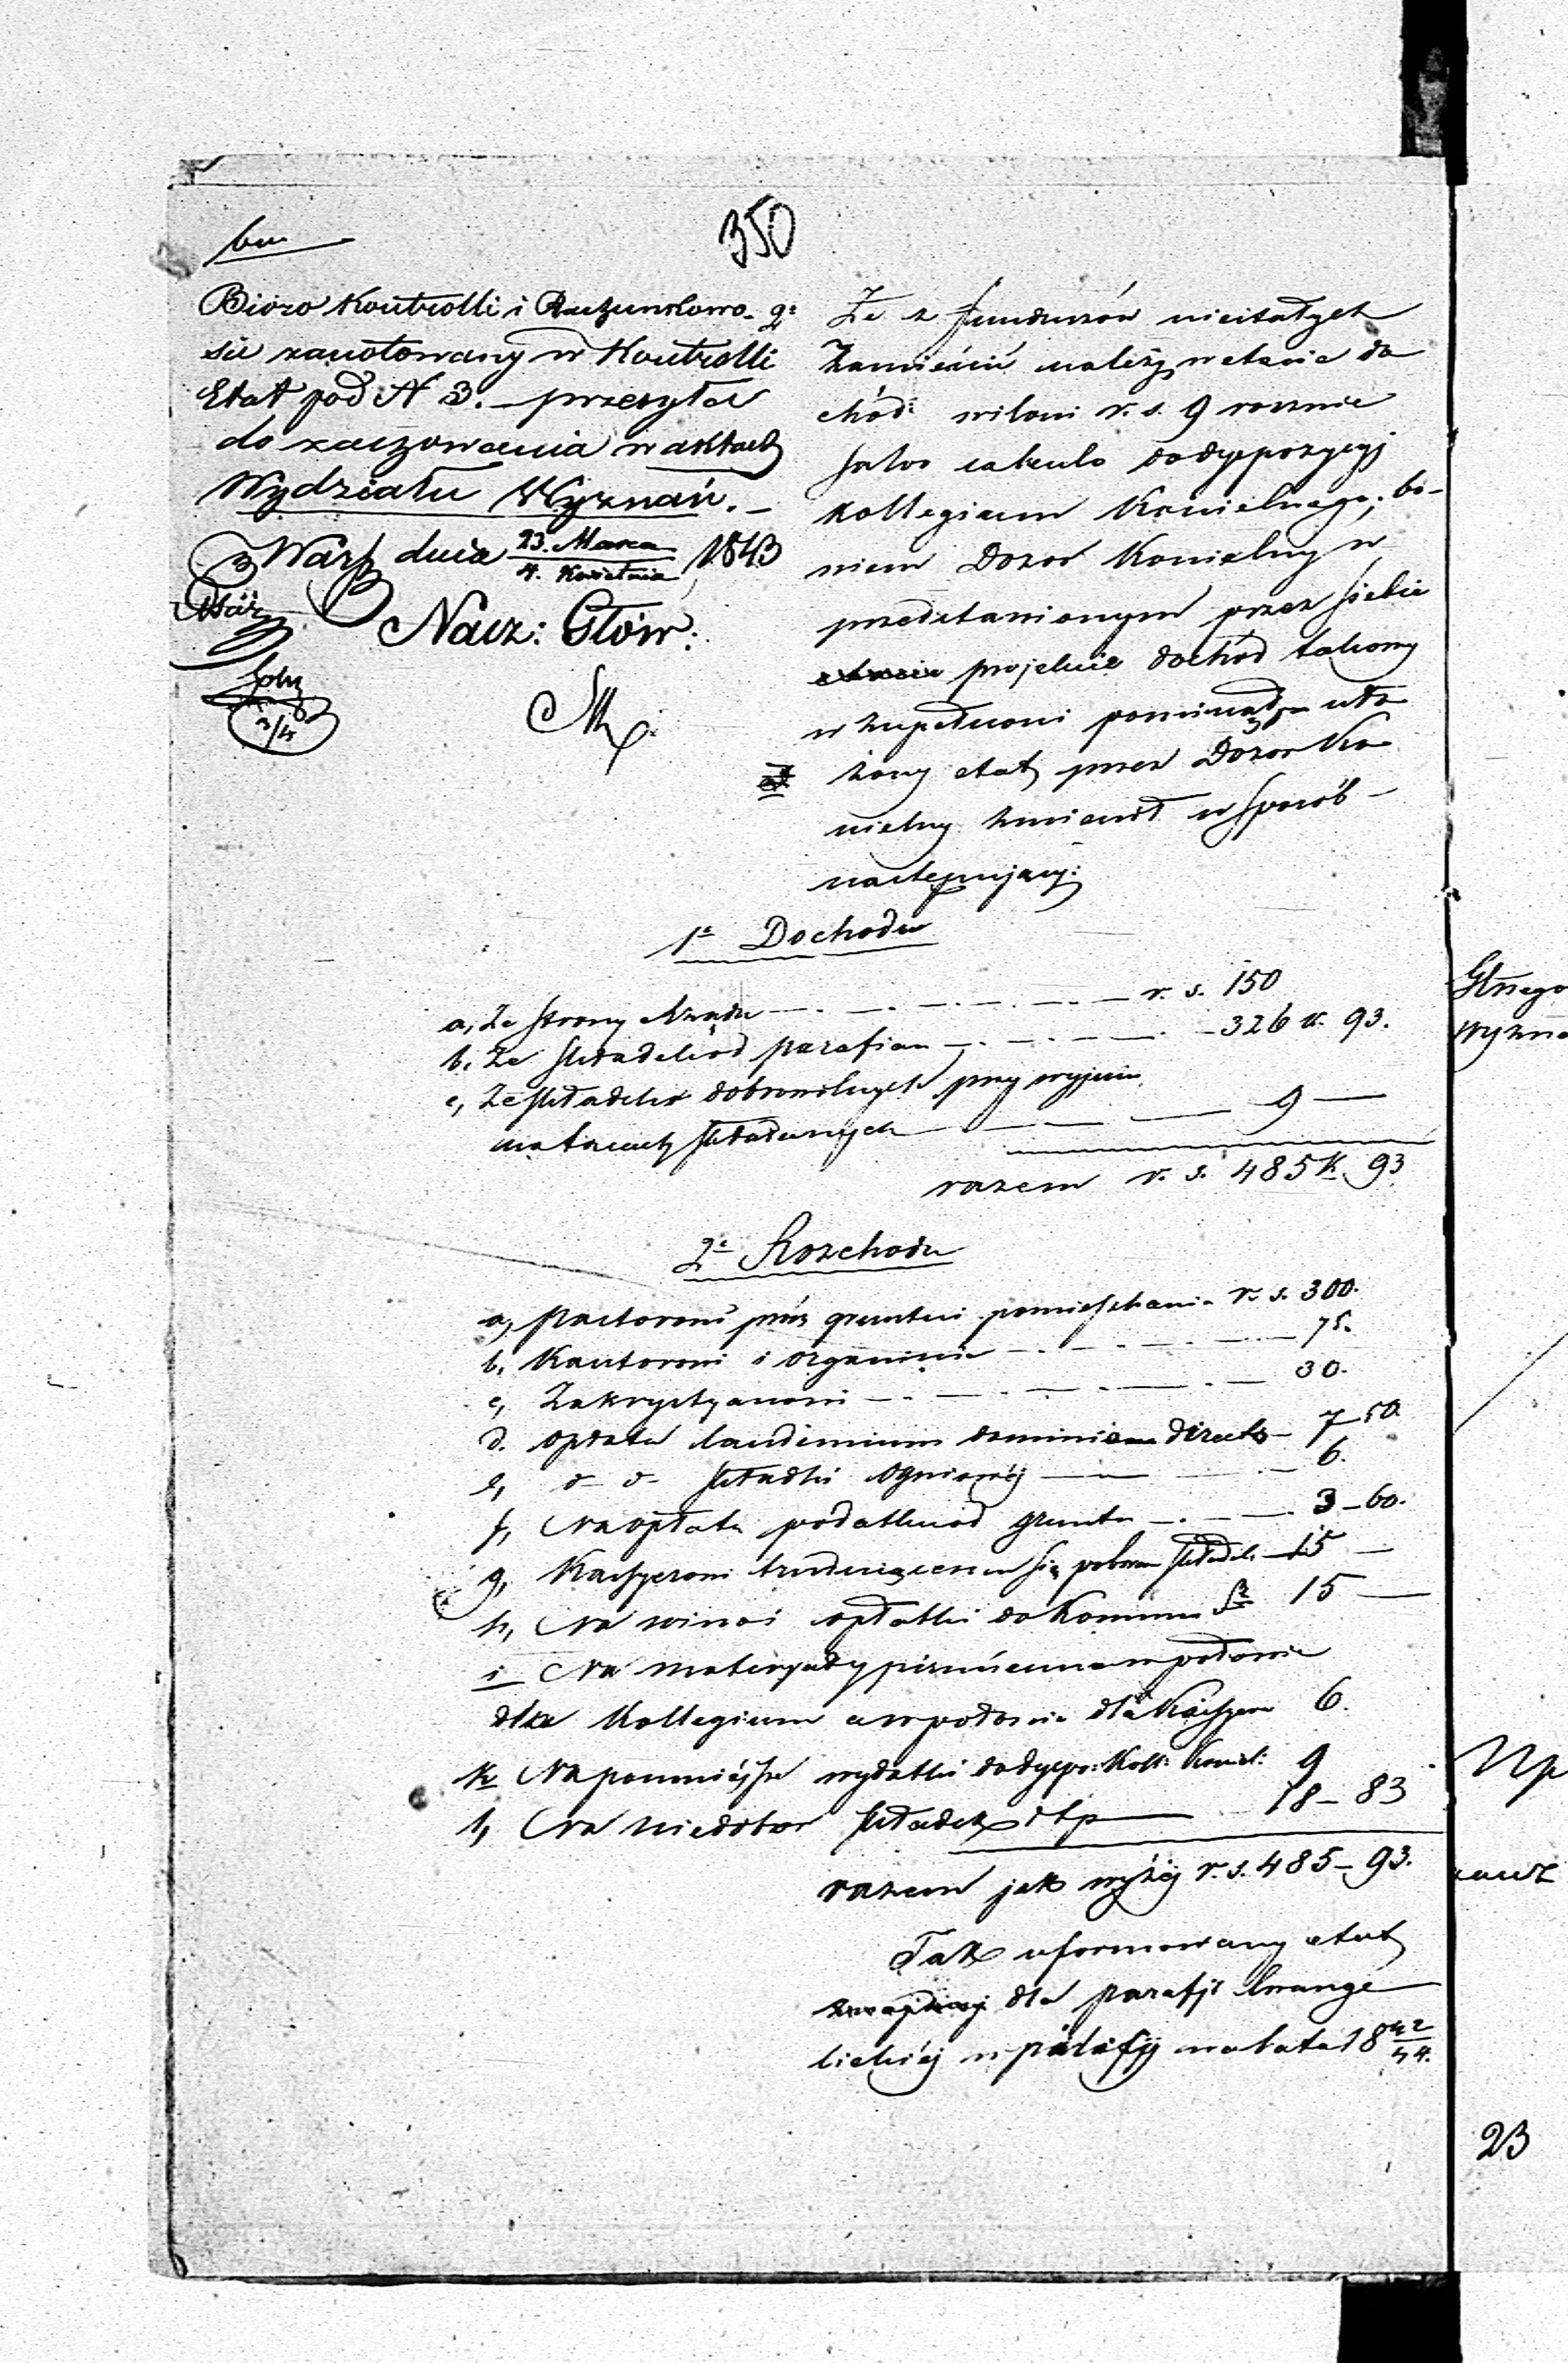 350
Biuro Kontrolli i Rachunkowo-
ści zanotowany w Kontrolli
Etat pod N 3. przesyła
do zachowania w aktach
Wydziału Wyznań.
Warsz dnia 23. Marca / 4. Kwietnia 1843
Nacz: Głów:
2/4
2e
Że z funduszów niestałych
zamieścić należy w etacie do
chód r. s. 9 rocznie
salvo calculo do dyspozycyj
Kollegium Kościelnego; bo-
wiem Dozór Kościelny w
przedstawionym przez siebie
projekcie dochód takowy
w zupełności pominął, uło
żony etat przez Dozór Ko
ścielny zmienił w sposób
następujący:
1e Dochodu
a, Ze strony Rządu r. s. 150
b, Ze składek od parafian 326 k. 93.
c, Ze składek dobrowolnych przy wyjściu
na tacach składanych 9
razem r. s. 485 k. 93
2e Rozchodu
a, Pastorowi prócz gruntu i pomieszkania r. s. 300.
b, Kantorowi i organiście 75.
c, Zakrystyanowi 30.
d. opłata laudemium dominio directo 7-50
e, d- d- składki ogniowéj 6.
f, Na opłatę podatku od gruntu 3-60.
g, Kassyerowi trudniącemu się poborem składek 15
h, Na wino i opłatki do Komunii 15
i Na materyały piśmienne w połowie
dla Kollegium a w połowie dla Kassyera 6.
k Na pomniejsze wydatki do dyspo: Koll: Kościel: 9
l, Na niedobór składek i tp 18-83
razem jak wyżéj r. s. 485-93.
Tak uformowany etat
dla parafji Ewange
lickiéj w na lata 18 42/44.
23